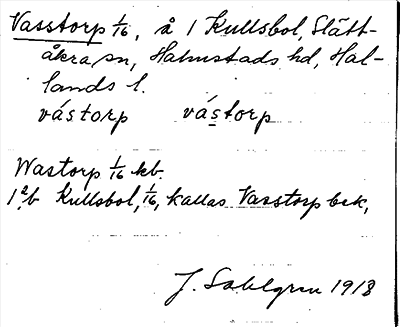 Vasstorp 1/16, å 1 Kullsbol, Slätt-
åkra sn, Halmstads hd, Hal-
lands l.
vástorp vástorp
Wastorp 1/16 kb.
1 2/b Kullsbol, 1/16, kallas Vasstorp bek,
J. Sahlgren 1918